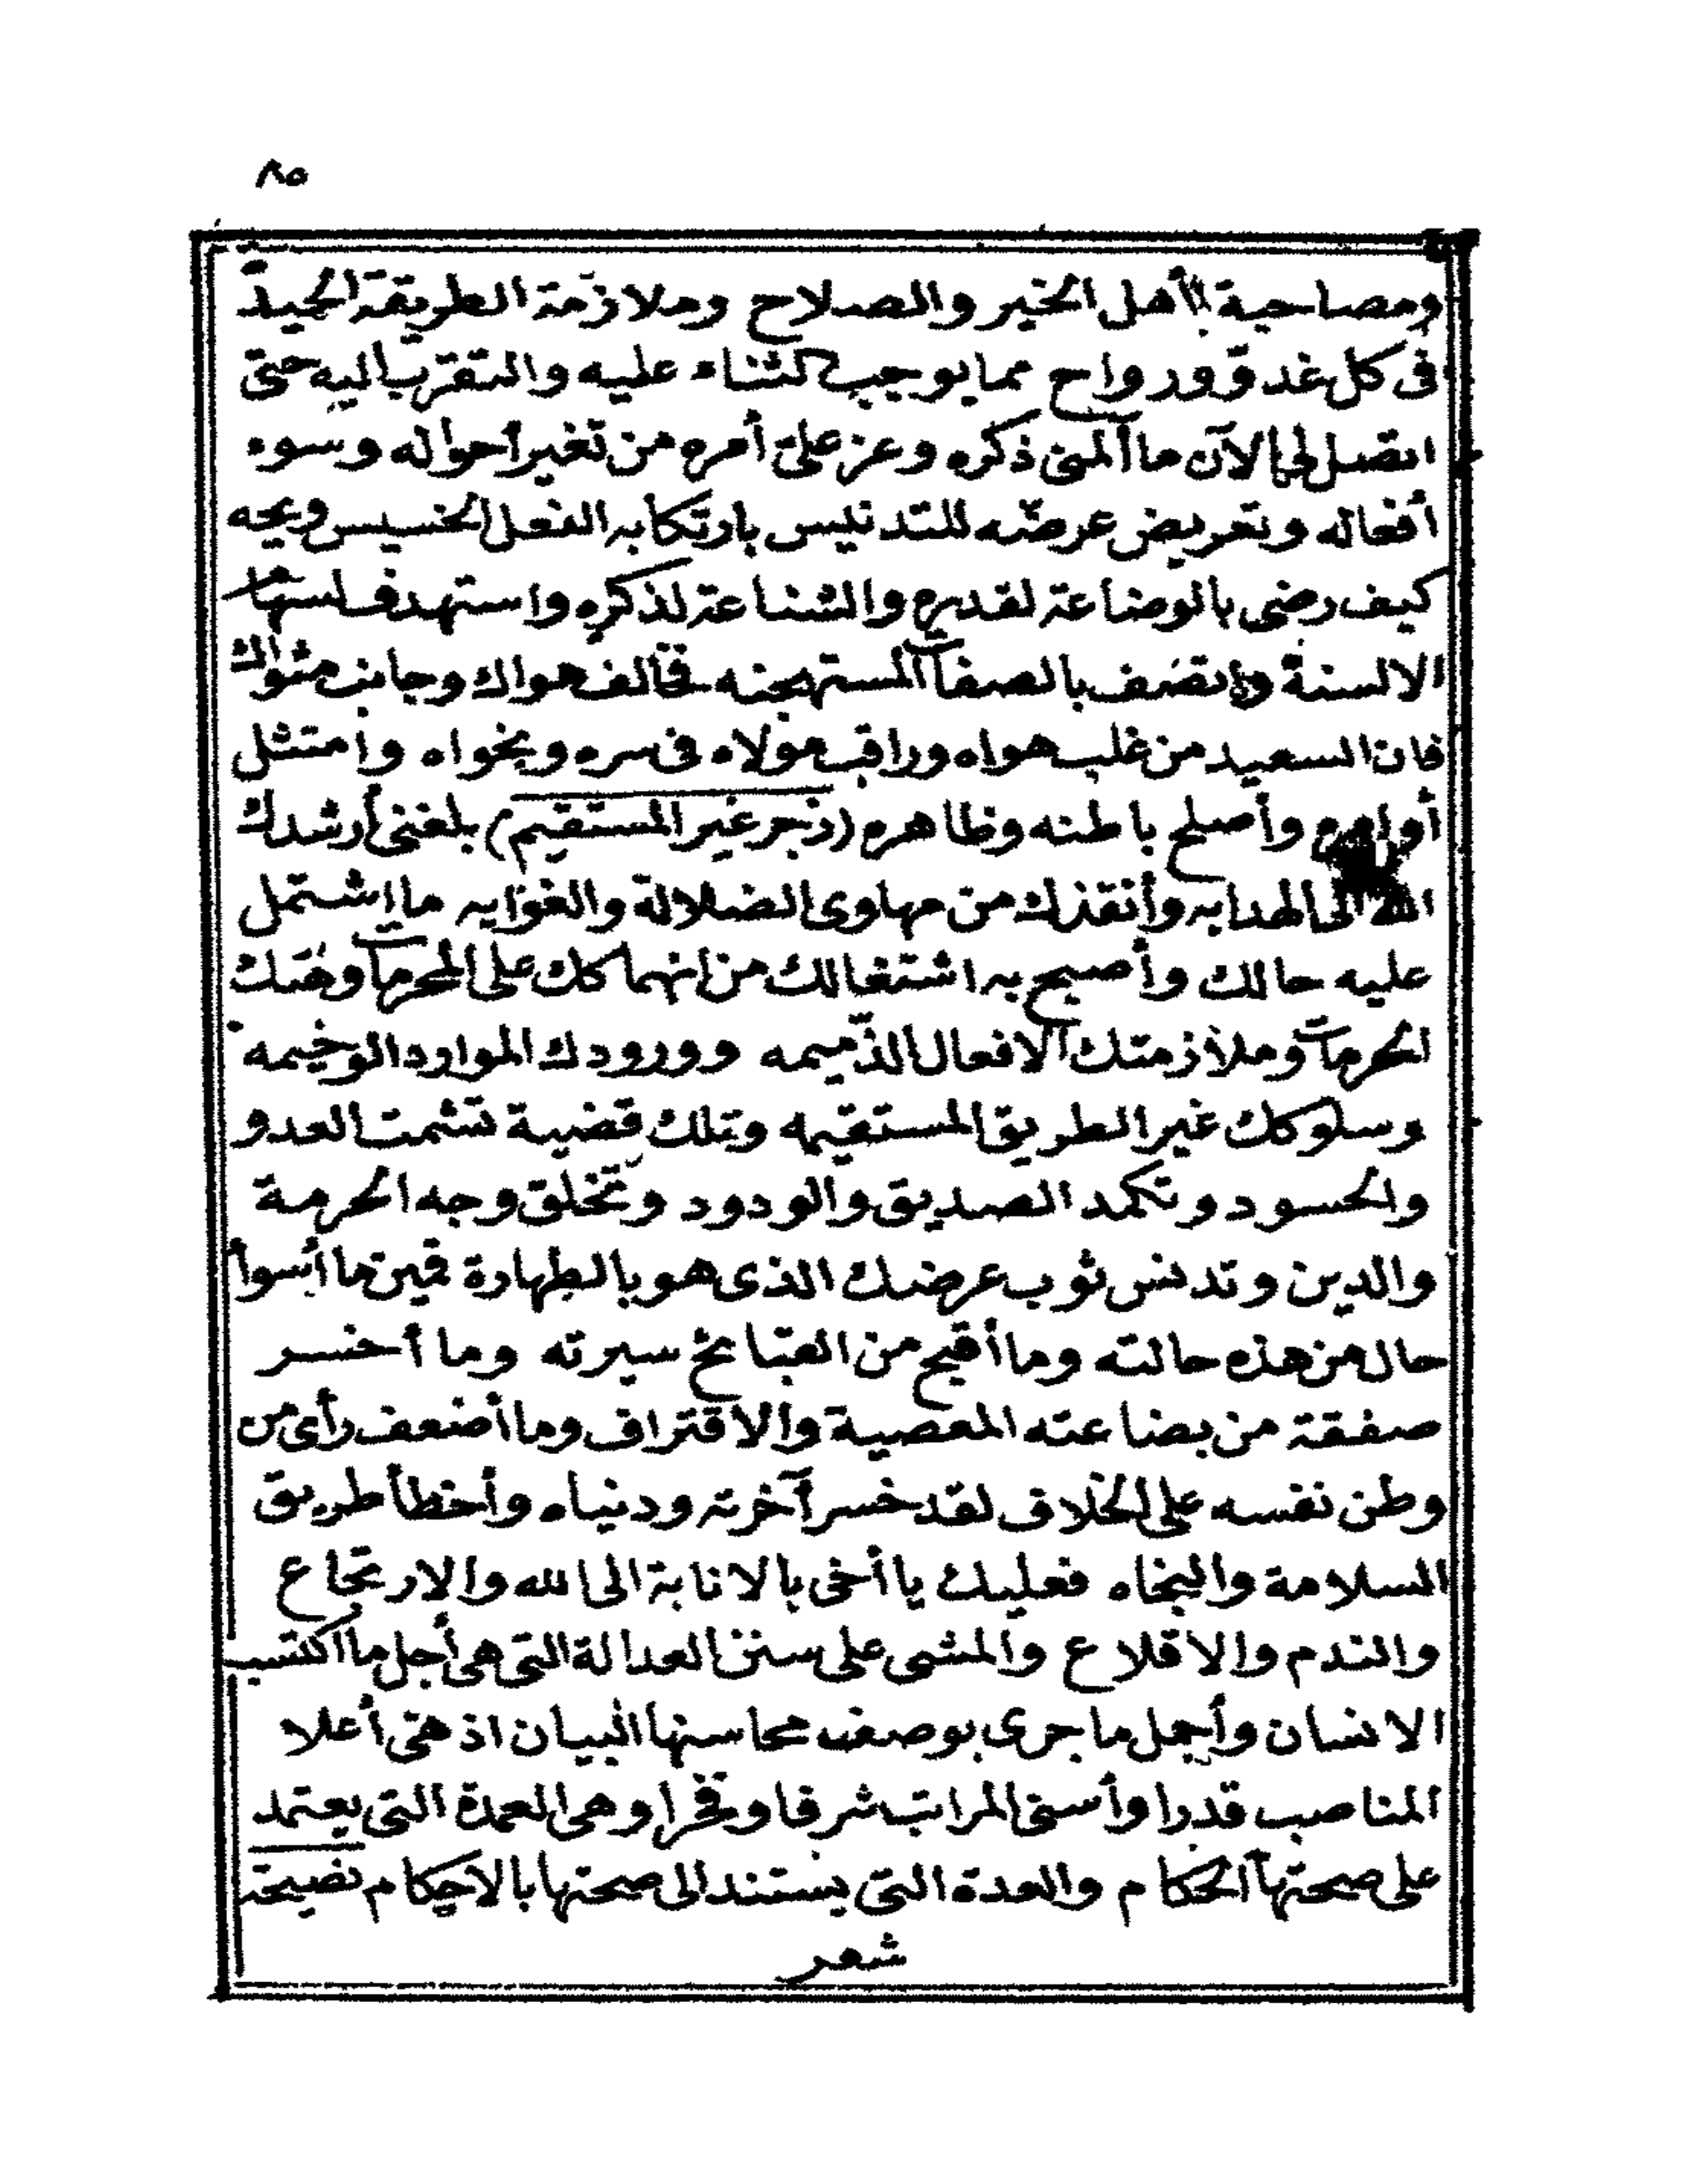 ٨٥
ومصاحبة أهل الخير والصلاح وملازمة الطريقة الحميدة
فى كل غدوّ ورواح مما يوجب لثناء عليه والتقرب اليه حتى
اتصل لى الآن ما آلمنى ذكره وعز علىّ أمره من تغير أحواله وسوء
أفعاله وتعريض عرضه للتدنيس بارتكابه الفعل الخسيس ويحه
كيف رضى بالوضاعة لقدره والشناعة لذكره واستهدف لسهام
الالسنة واتصف بالصفات المستهجنه فخالف هواك وجانب مثواك
فان السعيد من غلب هواه وراقب مولاه فى سره ونجواه وامتثل
أوامره وأصلح باطنه وظاهره (زجر غير المستقيم) بلغنى أرشدك
الله الى الهدايه وأنقذك من مهاوى الضلالة والغوايه ما اشتمل
عليه حالك وأصبح به اشتغالك من انهماكك على المحرمات وهتك
الحرمات وملازمتك الافعال الذميمه وورودك الموارد الوخيمه
وسلوكك غير الطريق المستقيمه وتلك قضية تشمت العدو
والحسود وتكمد الصديق والودود وتخلق وجه الحرمة
والدين وتدنس ثوب عرضك الذى هو بالطهارة قمين ما أسوأ
حال من هذه حالته وما أقبح من القبائح سيرته وما أخسر
صفقة من بضاعته المعصية والاقتراف وما أضعف رأى من
وطن نفسه على الخلاف لقد خسر آخرته ودنياه وأخطأ طريق
السلامة والنجاه فعليك يا أخى بالانابة الى الله والارتجاع
والندم والاقلاع والمشى على سنن العدالة التى هى أجل ما اكتسب
الانسان وأجمل ما جرى بوصف محاسنها البيان اذ هى أعلا
المناصب قدرا وأسنى المراتب شرفا وفخرا وهى العمدة التى يعتمد
على صحتها الحكام والعدة التى يستند الى صحتها بالاحكام نصيحة
شعر